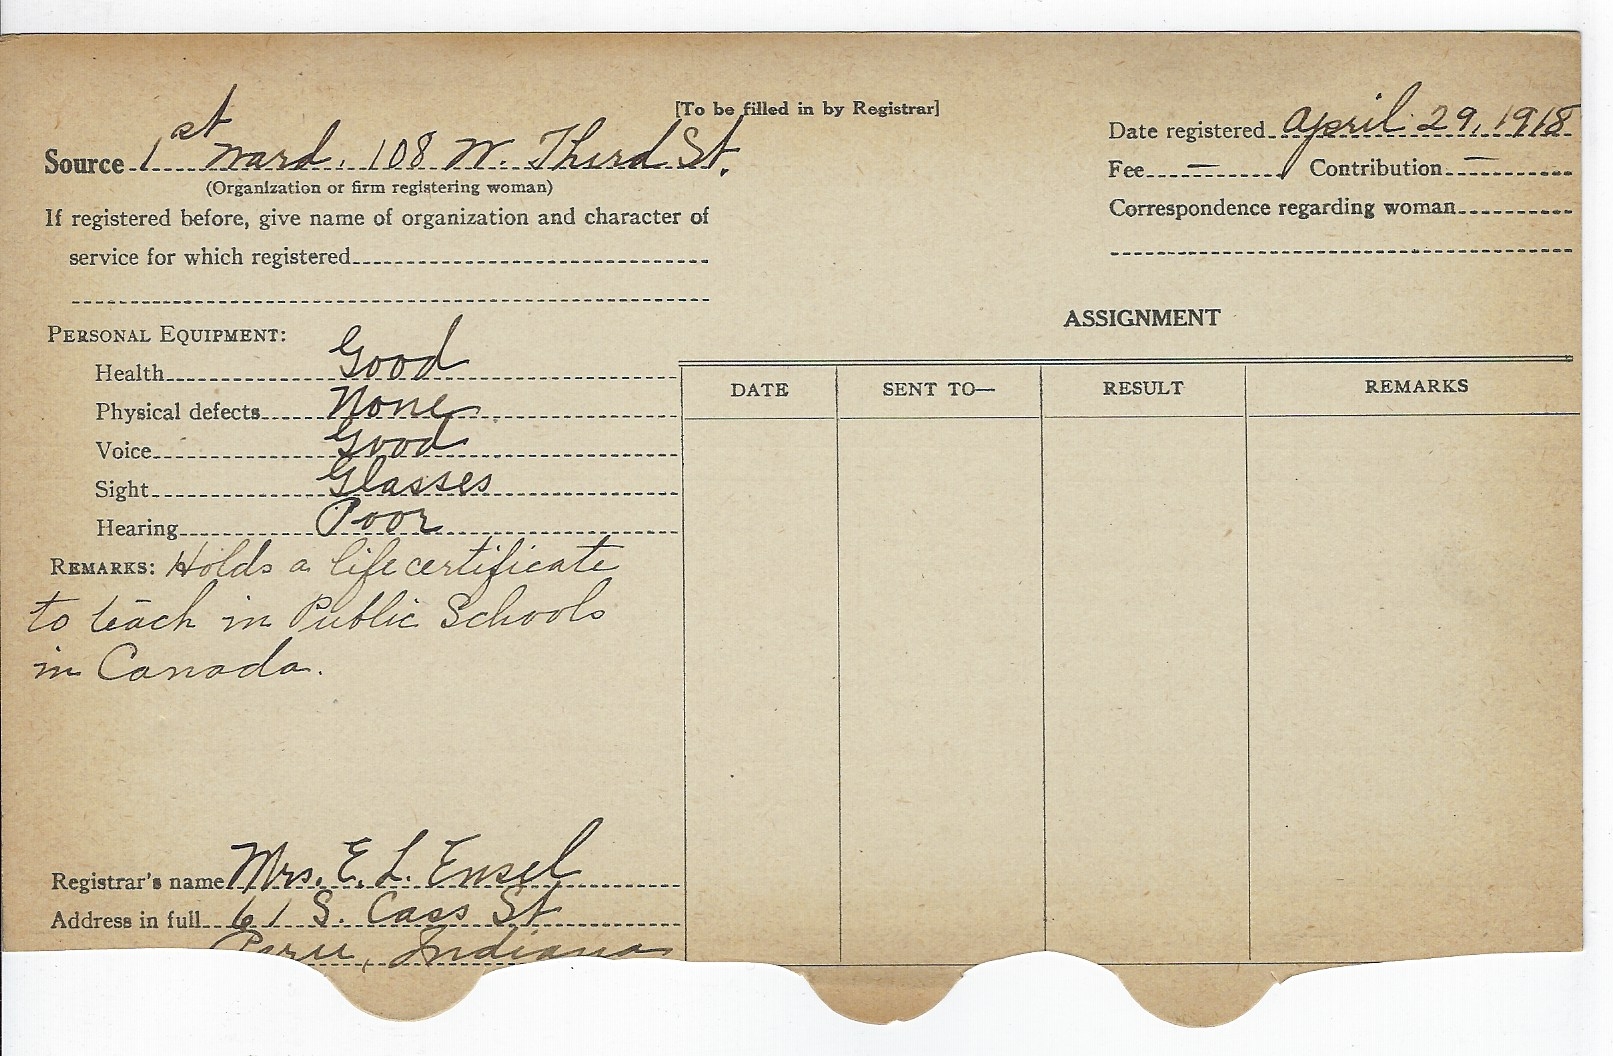 [To be filled in by Registrar]
Source 1st Ward, 108 W. Third St.
(Organization or firm registering woman)
If registered before, give name of organization and character of
service for which registered
Date registered April 29, 1918
Fee — Contribution —
Correspondence regarding woman
PERSONAL EQUIPMENT:
Health Good
Physical defects None
Voice Good
Sight Glasses
Hearing Poor
REMARKS: Holds a life certificate
to teach in Public Schools
in Canada.
Registrar's name Mrs. E. L. Ensel
Address in full 61 S. Cass St
Peru, Indiana
ASSIGNMENT
DATE SENT TO— RESULT REMARKS